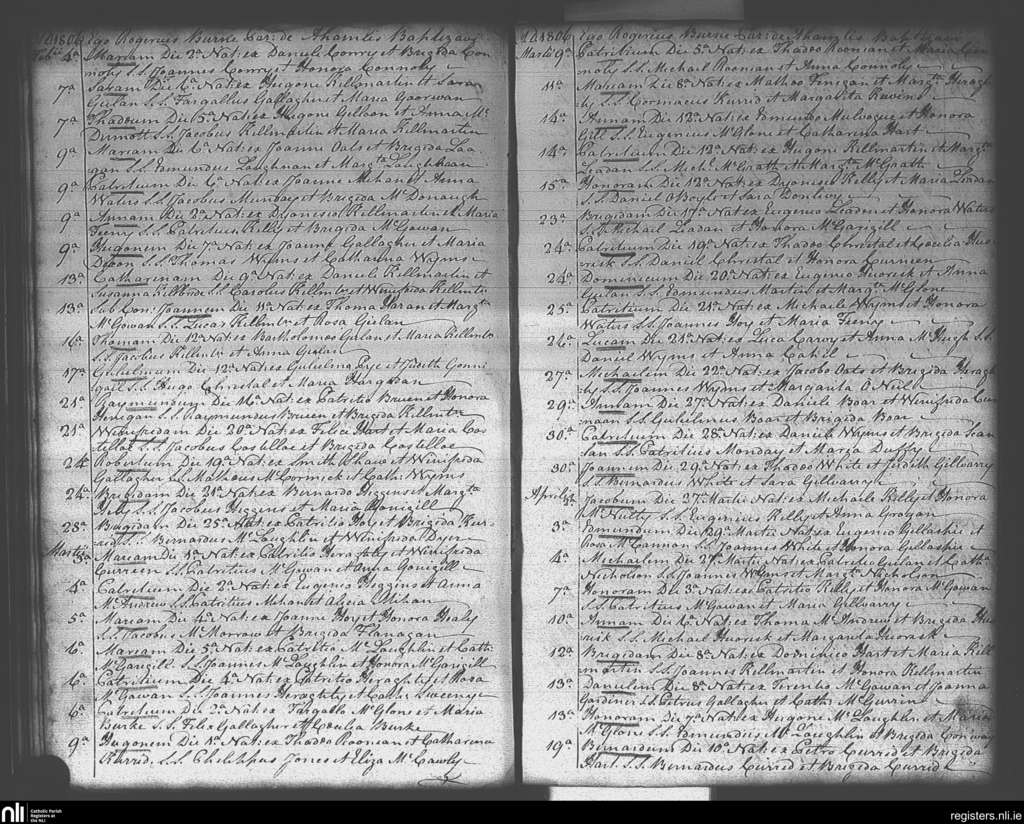 AD 1806 Ego Rogerius Burne Par: de Ahamlis Baptizavi
Feb: 4ª Mariam Die 2ª Nat: ex Daniele Conry et Brigida Con
noly S.S. Joannes Conry et Honora Connoly
7ª Saram Die 6ª Nat: ex Hugone Killmartin et Sara
Gilan S.S. Fargallus Gallagher et Maria
7ª Thadeum Die 5ª Nat: ex Hugone Gilban et Anna Mc
Dermott S.S. Jacobus Killmartin et Maria Killmartin
9ª Mariam Die 6ª Nat: ex Joanne Oats et Brigida Laa
gan S.S. Edmundus Laughnan et Margta
9ª Patritium Die 6ª Nat: ex Joanne Mihan et Anna
Waters S.S. Jacobus Munday et Brigida Mc Donaugh
9ª Annam Die 2ª Nat: ex Dyonesio Killmartin et Maria
Feeny S.S. Patritius Kelly et Brigida Mc Gowan
9ª Hugonem Die 7ª Nat: ex Joanne Gallagher et Maria
Dixon S.S. Thomas Wyms et Catharina Wyms
13ª Catharinam Die 9ª Nat: ex Daniele Killmartin et
Susanna S.S. Carolus Killmtn et Winifrida Killmtn
13ª Sub Con: Joannem Die 11ª Nat: ex Thoma Haran et Margta
Mc Gowan S.S. Lucas Killmtn et Rosa Gilan
16ª Thomam Die 12ª Nat: ex Bartholomeo Gilan et Maria Killmtn
S.S. Jacobus Killmtn et Anna Gilan
17ª Gulielmum Die 12ª Nat: ex Gulielmo Pye et Judith Gonni
gail S.S. Hugo Christal et Maria Hargadan
21ª Raymundum Die 16ª Nat: ex Patritio Bruen et Honora
Henegan S.S. Raymundus Bruen et Brigida Killmtn
21ª Winifridam Die 20ª Nat: ex Felice Hart et Maria Cos
tilloe S.S. Jacobus Costelloe et Brigida Costelloe
24ª Robertum Die 19ª Nat: ex Smith Shaw et Winifrida
Gallagher S.S. Matheus Mc Cormick et Cath: Wyms
24ª Brigidam Die 21ª Nat: ex Bernardo Higgins et Margta
S.S. Jacobus Higgins et Maria
28ª Brigidam Die 25ª Nat: ex Patritio Hoy et Brigida Kur
rid S.S. Bernardus Mc Laughlin et Winifrida Dyer
Martii 3ª Mariam Die 1ª Nat: ex Patritio Heraghty et Winifrida
Curreen S.S. Patritius Mc Gowan et Anna
4ª Patritium Die 2ª Nat: ex Eugenio Higgins et Anna
Mc Andrew S.S. Patritius Mihan et Alicia Mihan
5ª Mariam Die 4ª Nat: ex Joanne Hoy et Honora Healy
S.S. Jacobus Mc Morrow et Brigida Flanagan
6ª Mariam Die 5ª Nat: ex Patritio Mc Laughlin et Cath:
Mc Garigill S.S. Joannes Mc Laughlin et Honora Mc Garigill
6ª Patritium Die 4ª Nat: ex Patritio Heraghty et Rosa
Mc Gowan S.S. Joannes Heraghty et Cath: Sweeny
6ª Patritium Die 2ª Nat: ex Fargallo Mc Glone et Maria
Burke S.S. Felix Gallagher et Cecelia Burke
9ª Hugonem Die 1ª Nat: ex Thadeo Roonian et Catharina
Kurrid S.S. Philippus Jones et Eliza Mc Cawly
AD 1806 Ego Rogerius Burne Par: de Ahamlis Baptizavi
Martii 9ª Patritium Die 5ª Nat: ex Thadeo Roonian et Maria Con
noly S.S. Michael Roonian et Anna Connoly
11ª Mariam Die 8ª Nat: ex Matheo Finigan et Margta Heragh
ty S.S. Cormacus Kurrid et Margarita
14ª Annam Die 12ª Nat: ex Edmundo Mulvogue et Honora
Gill S.S. Eugenius Mc Glone et Catharina Hart
14ª Patritium Die 12ª Nat: ex Hugone Killmartin et Margta
Leadan S.S. Michl Mc Grath et Margta Mc Grath
15ª Honoram Die 12ª Nat: ex Dyonesio Kelly et Maria Leadan
S.S. Daniel O Boyle et Sara
23ª Brigidam Die 17ª Nat: ex Eugenio Leaden et Honora Waters
S.S. Michael Leadan et Honora Mc Garigill
24ª Patritium Die 19ª Nat: ex Thadeo Christal et Coecilia Huo
risk S.S. Daniel Christal et Honora Curneen
24ª Dominicum Die 20ª Nat: ex Eugenio Huorisk et Anna
Gilan S.S. Edmundus Martin et Margta Mc Glone
25ª Patritium Die 21ª Nat: ex Michaele Wyms et Honora
Waters S.S. Joannes Hoy et Maria Feeny
26ª Lucam Die 21ª Nat: ex Luca Carvy et Anna Mc Hugh S.S.
Daniel Wyms et Anna Cahil
27ª Michaelem Die 22ª Nat: ex Jacobo Oats et Brigida Heragh
ty S.S. Joannes Wyms et Margarita O Neill
29ª Annam Die 27ª Nat: ex Daniele Boar et Winifrida Cun
nan S.S. Gulielmus Boar et Brigida Boar
30ª Patritium Die 28ª Nat: ex Daniele Wyms et Brigida Scan
lan S.S. Patritius Monday et Maria Duffy
30ª Joannem Die 29ª Nat: ex Thadeo White et Judith Gillvarry
S.S. Bernardus White et Sara Gillvarry
Aprilis Jacobum Die 27ª Martii Nat: ex Michaele Kelly et Honora
Mc Nulty S.S. Eugenius Kelly et Anna Grogan
3ª Edmundum Die 29ª Martii Nat: ex Eugenio Gillaspie et
Rosa Mc Cannon S.S. Joannes White et Honora Gillaspie
4ª Michaelem Die 27ª Martii Nat: ex Patritio Gilan et Cath:
Nicholson S.S. Joannes Wyms et Margta Nicholson
7ª Honoram Die 3ª Nat: ex Patritio Kelly et Honora Mc Gowan
S.S. Patritius Mc Gowan et Maria Gillvarry
10ª Annam Die 6ª Nat: ex Thoma Mc Andrew et Brigida Huo
risk S.S. Michael Huorisk et Margarita Huorisk
12ª Brigidam Die 8ª Nat: ex Dominico Hart et Maria Kill
martin S.S. Joannes Killmartin et Honora Killmartin
13ª Danielem Die 8ª Nat: ex Terentio Mc Gowan et Joanna
Gardiner S.S. Petrus Gallagher et Cath: Mc Gurrin
13ª Honoram Die 7ª Nat: ex Hugone Mc Laughlin et Maria
Mc Glone S.S. Edmundus Mc Laughlin et Brigida Conway
19ª Bernardum Die 10ª Nat: ex Petro Currid et Brigida
Hart S.S. Bernardus Currid et Brigida Currid
nli
Catholic Parish
Registers at
the NLI
registers.nli.ie